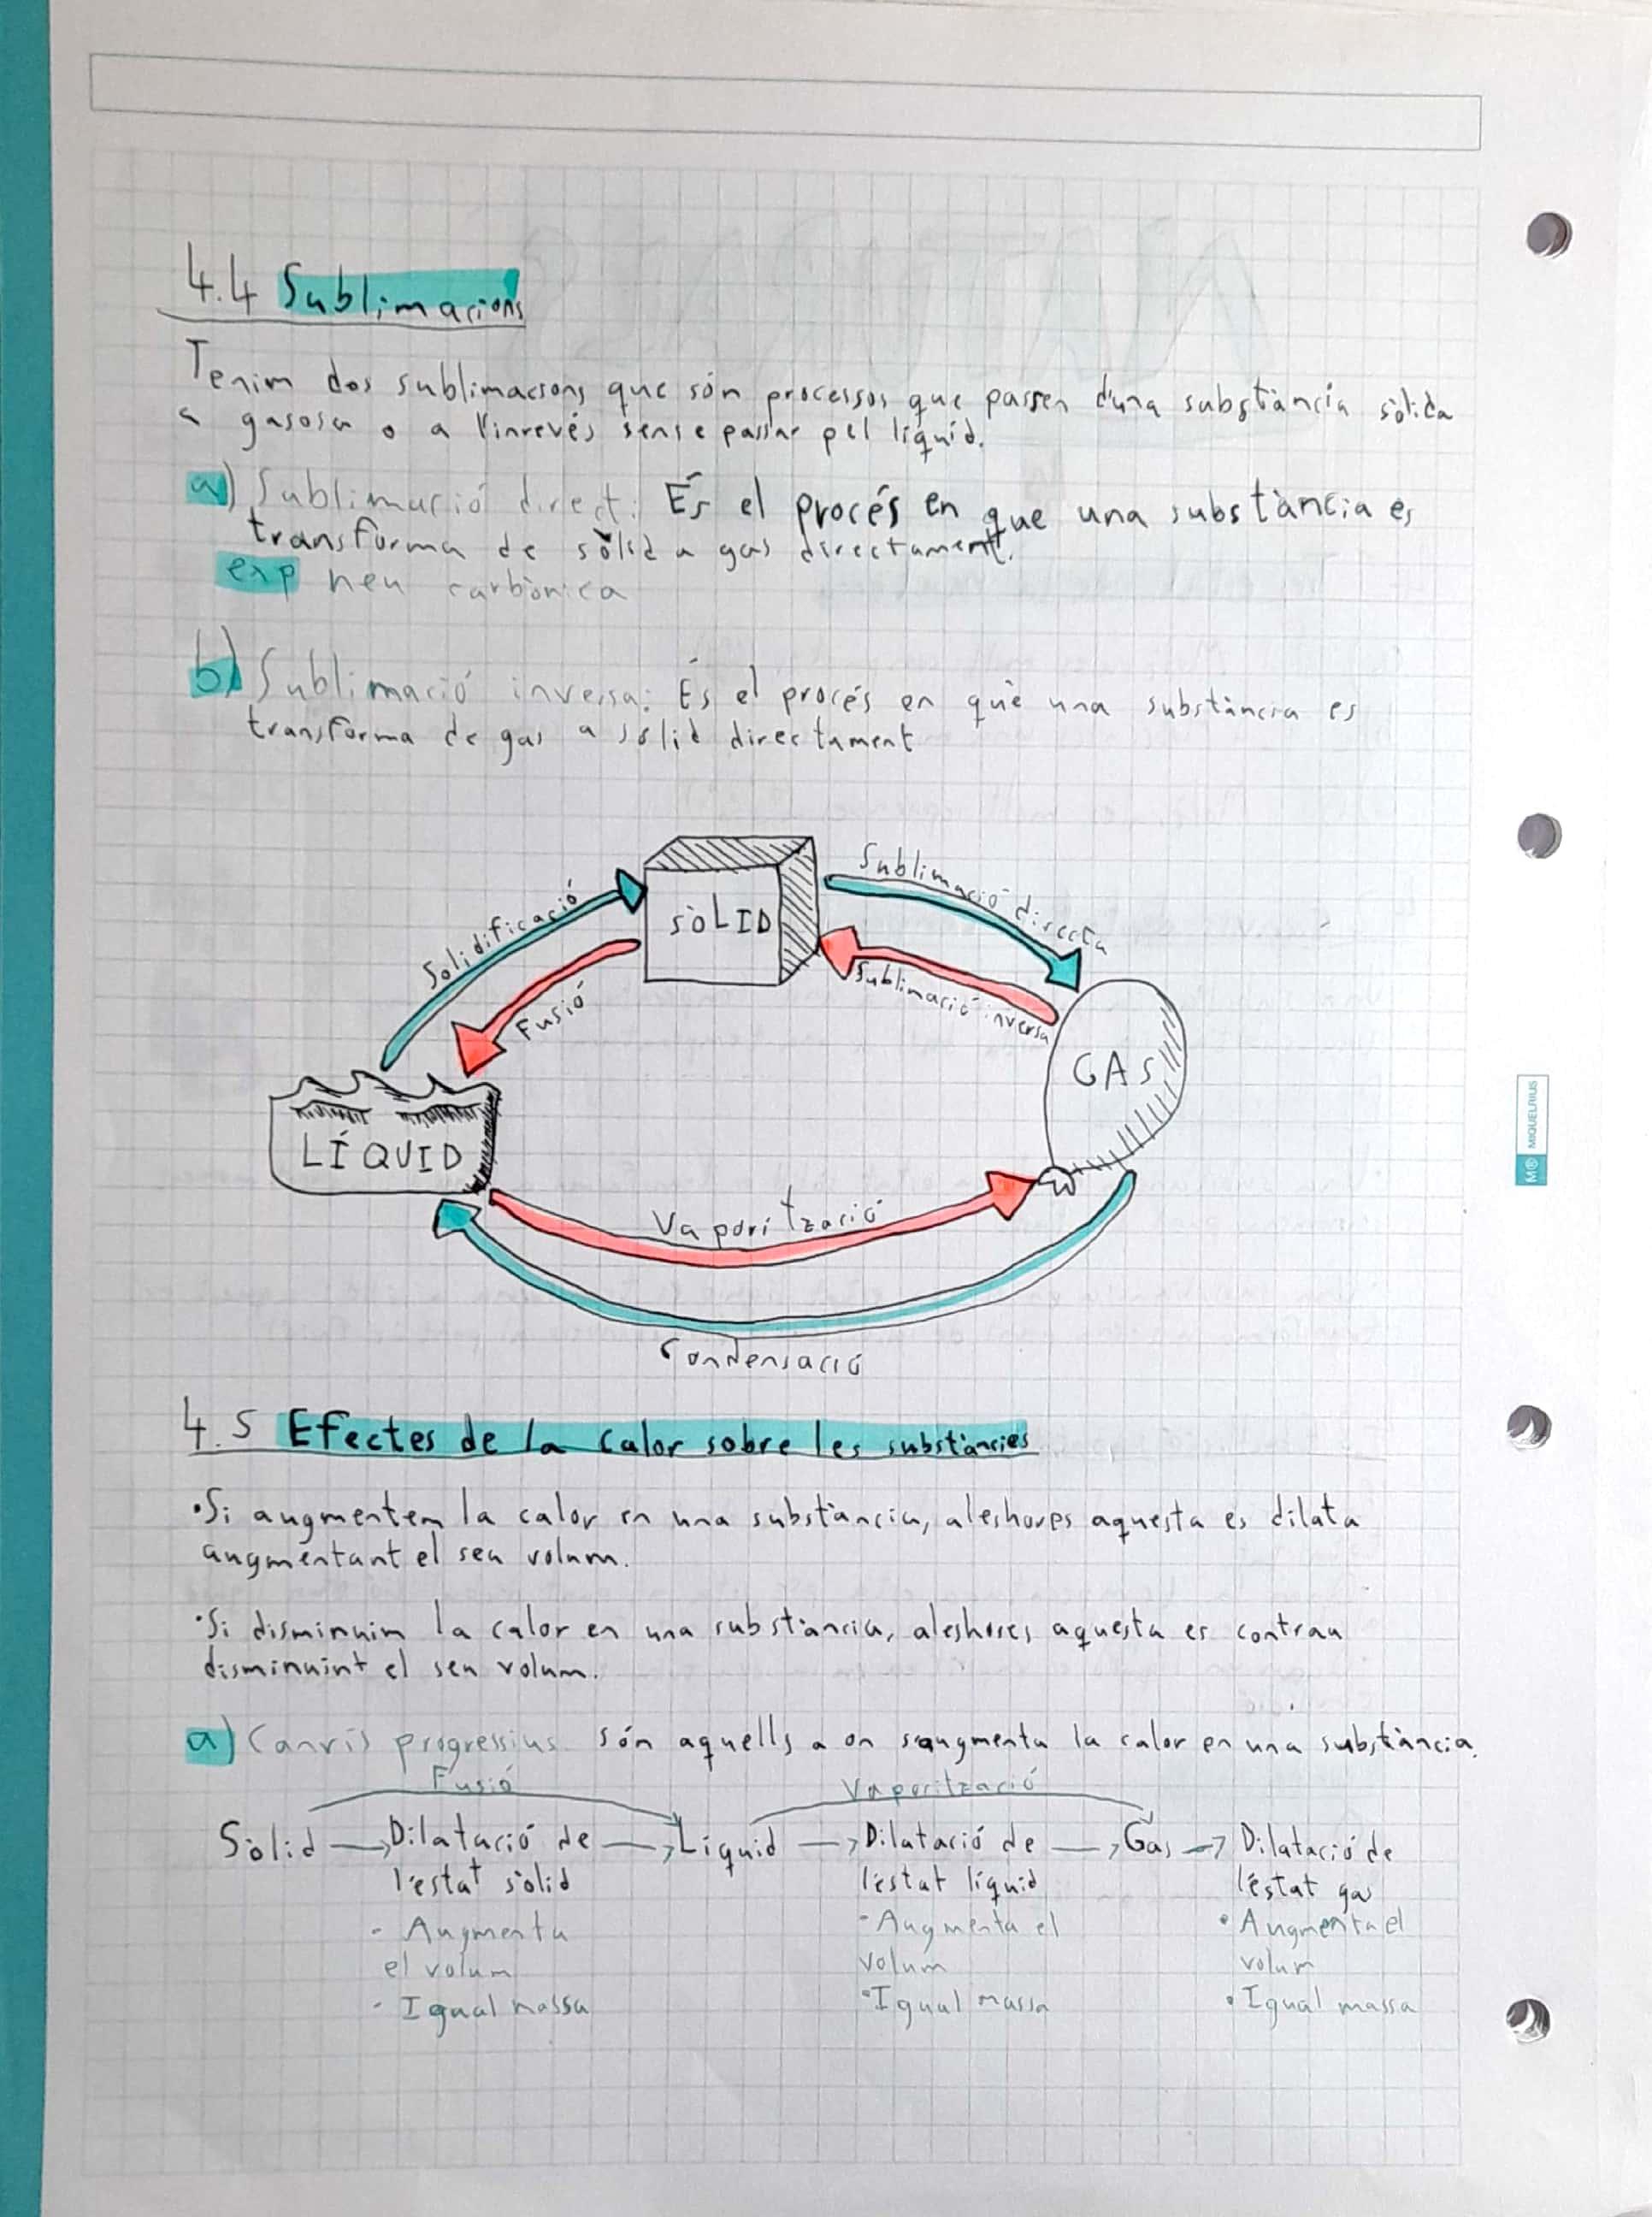 4.4 Sublimacions
Tenim dos sublimacions que són processos que passen d'una substància sòlida
a gasosa o a l'inrevés sense passar pel líquid.
a) Sublimació direct: És el procés en que una substància es
transforma de sòlid a gas directament.
exp neu carbònica
b) Sublimació inversa: És el procés en què una substància es
transforma de gas a sòlid directament
Sublimació directa
Solidificació
SÒLID
Fusió
Sublimació inversa
GAS
LÍQUID
Vaporització
Condensació
M® MIQUELRIUS
4.5 Efectes de la calor sobre les substàncies
•Si augmentem la calor en una substància, aleshores aquesta es dilata
augmentant el seu volum.
•Si disminuim la calor en una substància, aleshores aquesta es contrau
disminuint el seu volum.
a) Canvis progressius són aquells a on s'augmenta la calor en una substància.
Fusió Vaporització
Sòlid → Dilatació de → Líquid → Dilatació de → Gas → Dilatació de
l'estat sòlid l'estat líquid l'estat gas
- Augmenta - Augmenta el • Augmenta el
el volum volum volum
- Igual massa • Igual massa • Igual massa